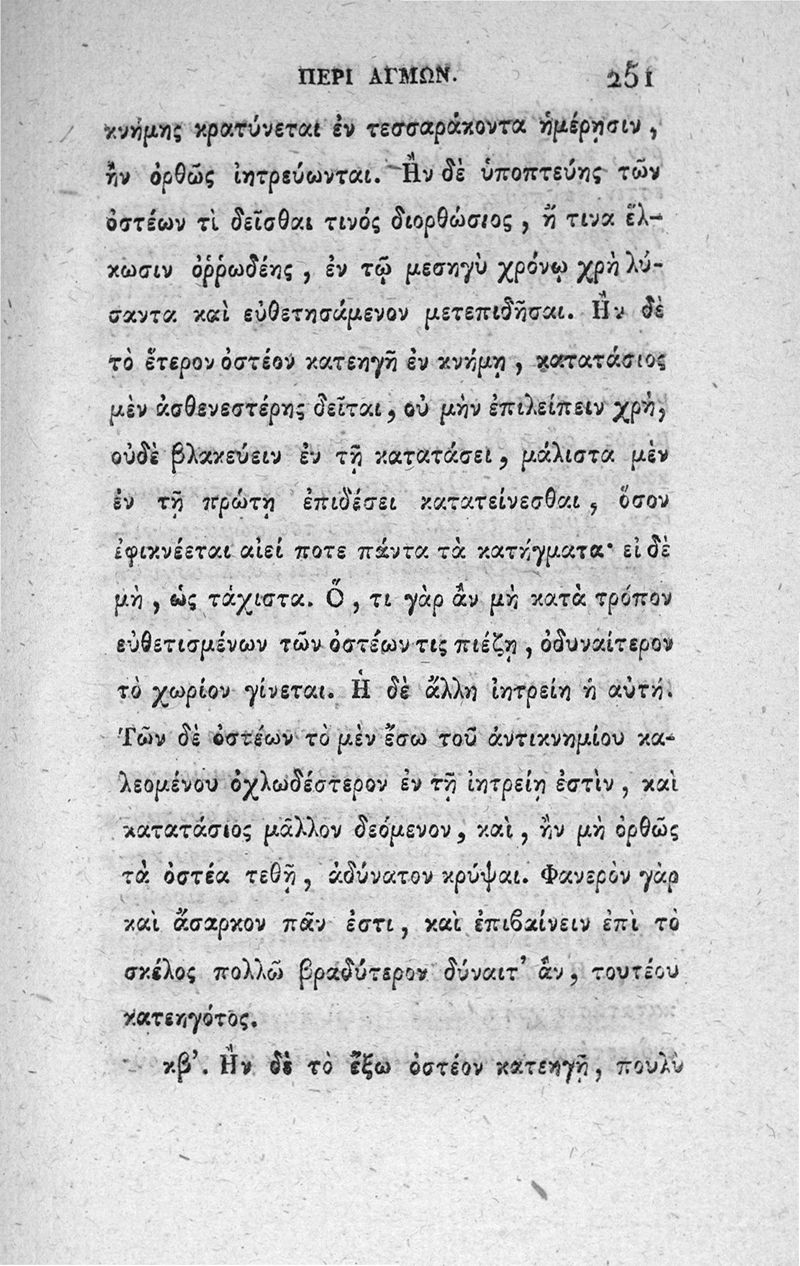 ΠΕΡΙ ΑΓΜΩΝ. 251
κνήμης κρατύνεται ἐν τεσσαράκοντα ἡμέρῃσιν,
ἢν ὀρθῶς ἰητρεύωνται. Ἢν δὲ ὑποπτεύῃς τῶν
ὀστέων τὶ δεῖσθαι τινός διορθώσιος, ἤ τινα ἕλ-
κωσιν ὀῤῥωδέῃς, ἐν τῷ μεσηγὺ χρόνῳ χρὴ λύ-
σαντα καὶ εὐθετησάμενον μετεπιδῆσαι. Ἢν δὲ
τὸ ἕτερον ὀστέον κατεηγῇ ἐν κνήμῃ, κατατάσιος
μὲν ἀσθενεστέρης δεῖται, οὐ μὴν ἐπιλείπειν χρὴ,
οὐδὲ βλακεύειν ἐν τῇ κατατάσει, μάλιστα μὲν
ἐν τῇ πρώτῃ ἐπιδέσει κατατείνεσθαι, ὅσον
ἐφικνέεται αἰεί ποτε πάντα τὰ κατήγματα· εἰ δὲ
μὴ, ὡς τάχιστα. Ὅ, τι γὰρ ἂν μὴ κατὰ τρόπον
εὐθετισμένων τῶν ὀστέων τις πιέζῃ, ὀδυναίτερον
τὸ χωρίον γίνεται. Ἡ δὲ ἄλλη ἰητρείη ἡ αὐτή.
Τῶν δὲ ὀστέων τὸ μὲν ἔσω τοῦ ἀντικνημίου κα-
λεομένου ὀχλωδέστερον ἐν τῇ ἰητρείῃ ἐστὶν, καὶ
κατατάσιος μᾶλλον δεόμενον, καὶ, ἢν μὴ ὀρθῶς
τὰ ὀστέα τεθῇ, ἀδύνατον κρύψαι. Φανερὸν γὰρ
καὶ ἄσαρκον πᾶν ἐστι, καὶ ἐπιβαίνειν ἐπὶ τὸ
σκέλος πολλῶ βραδύτερον δύναιτ᾽ ἂν, τουτέου
κατεηγότος.
κβ΄. Ἢν δὲ τὸ ἔξω ὀστέον κατεηγῇ, πουλὺ